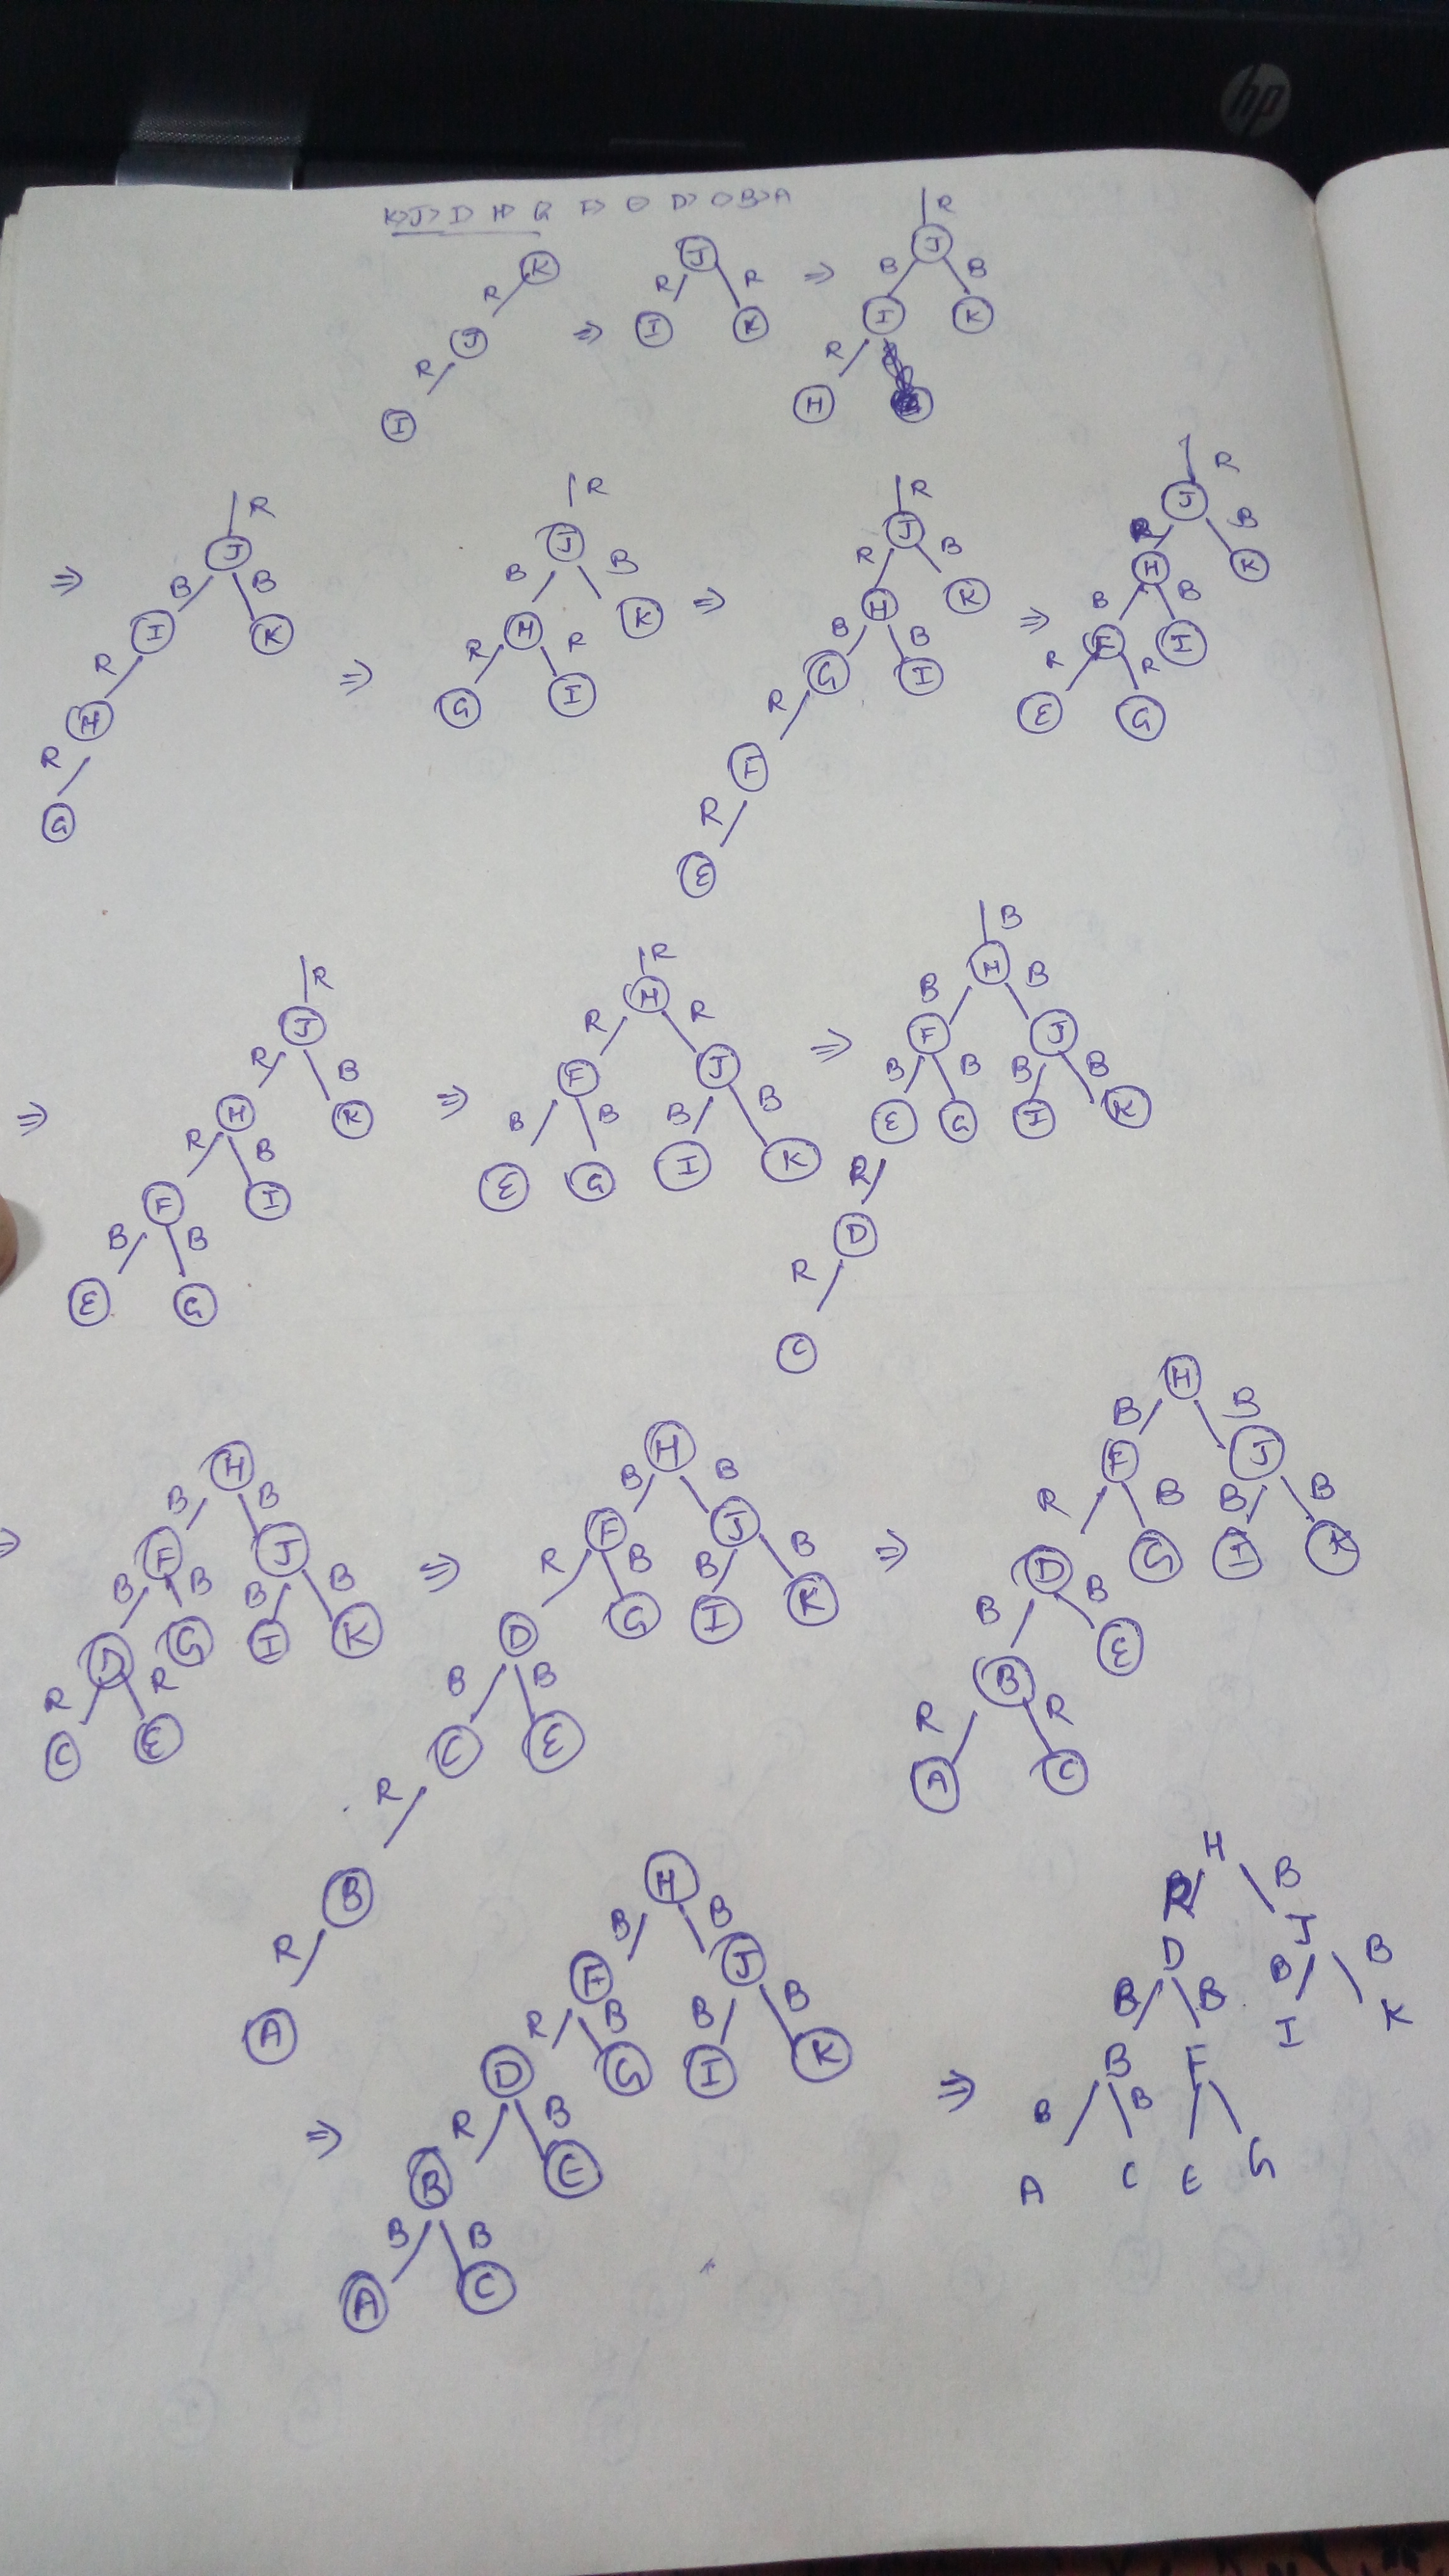 hp
K>J> I> H> G F> E D> C B>A
K
R
J
R
I
⇒
J
R R
I K
⇒
R
J
B B
I K
R
H
⇒
R
J
B B
I K
R
H
R
G
⇒
R
J
B B
H K
R R
G I
⇒
R
J
R B
H K
B B
G I
R
F
R
E
⇒
R
J
R B
H K
B B
F I
R R
E G
⇒
R
J
R B
H K
R B
F I
B B
E G
⇒
R
H
R R
F J
B B B B
E G I K
⇒
B
H
B B
F J
B B B B
E G I K
R
D
R
C
⇒
H
B B
F J
B B B B
D G I K
R R
C E
⇒
H
B B
F J
R B B B
D G I K
B B
C E
R
B
R
A
⇒
H
B B
F J
R B B B
D G I K
B B
B E
R R
A C
⇒
H
B B
F J
R B B B
D G I K
R B
B E
B B
A C
⇒
H
R B
D J
B B B B
B F I K
B B
A C E G